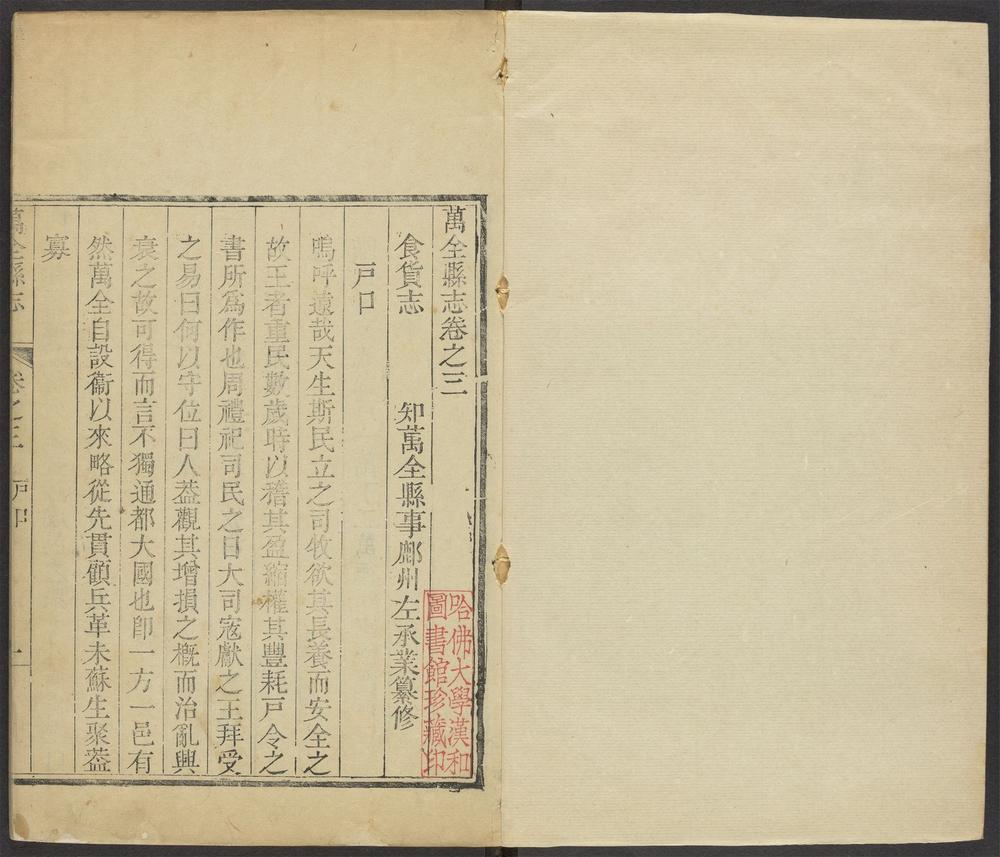 萬全縣志卷之三
食貨志
知萬全縣事鄜州左承業纂修
戶口
嗚呼遠哉天生斯民立之司牧欲其長養而安全之
故王者重民數歲時以稽其盈縮權其豐耗戶令之
書所爲作也周禮祀司民之日大司寇獻之王拜受
之易曰何以守位曰人葢觀其增損之概而治亂興
衰之故可得而言不獨通都大國也卽一方一邑有
然萬全自設衞以來略從先貫顧兵革未蘇生聚葢
寡
萬全縣志
卷之三
戶口
一
哈佛大學漢和
圖書館珍藏印